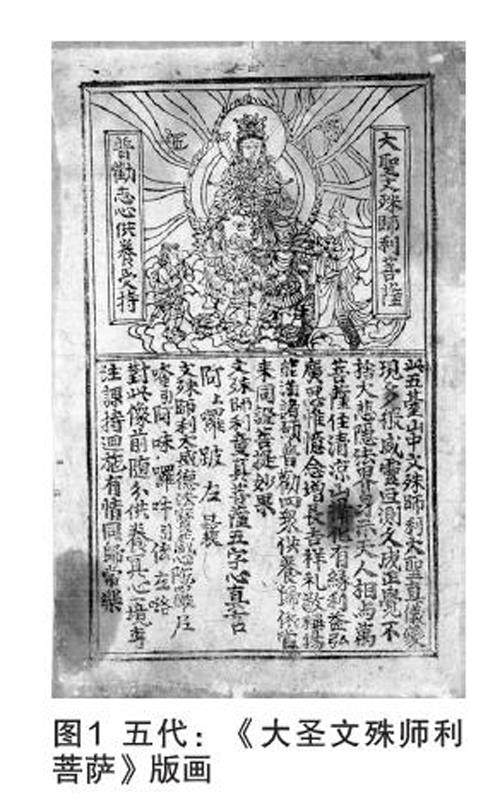 大聖文殊師利菩薩
普勸志心供養受持
此五臺山中文殊師利大聖真儀變
現多般威靈叵測久成正覺不
捨大悲隱法界身示天人相与萬
菩薩住清涼山攝化有緣利益弘
廣思惟憶念增長吉祥礼敬稱揚
能滿諸願普勸四衆供養歸依當
來同證菩提妙果
文殊師利童真菩薩五字心真言
阿上囉跛左曩
文殊師利大威德法寶藏心陀羅尼
唵引阿味囉吽引佉左洛
對此像前隨分供養冥心一境專
注課持迴施有情同歸常樂
图1 五代：《大圣文殊师利
菩萨》版画